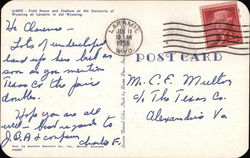 Field House and Stadium at the University of
Wyoming at Laramie in old Wyoming.
Hi Clarence -
Lots of undeveloped
land up here but as
soon as you mention
Texas Co. the price
doubles.
Hope you are all
well - best regards to
J.B.A & company
Charles F.
LARAMIE
JAN 11
10 AM
1956
WYO.
POST CARD
M. C. E. Mults
c/o The Texas Co.
Alexandria Va